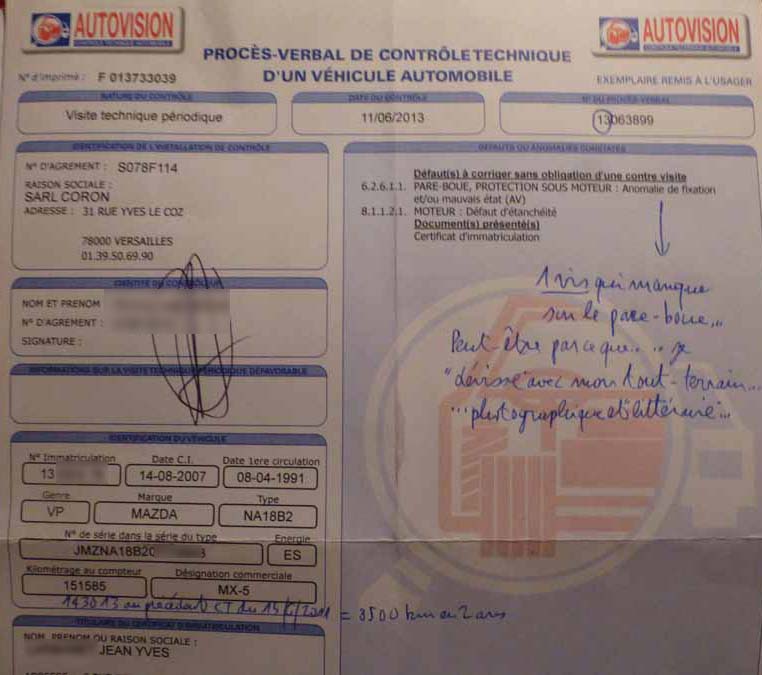 AUTOVISION
CONTRÔLE TECHNIQUE AUTOMOBILE
AUTOVISION
CONTRÔLE TECHNIQUE AUTOMOBILE
PROCÈS-VERBAL DE CONTRÔLE TECHNIQUE
D'UN VÉHICULE AUTOMOBILE
N° d'imprimé : F 013733039
EXEMPLAIRE REMIS À L'USAGER
NATURE DU CONTRÔLE
Visite technique périodique
DATE DU CONTRÔLE
11/06/2013
N° DU PROCÈS-VERBAL
13063899
IDENTIFICATION DE L'INSTALLATION DE CONTRÔLE
N° D'AGREMENT : S078F114
RAISON SOCIALE :
SARL CORON
ADRESSE : 31 RUE YVES LE COZ
78000 VERSAILLES
01.39.50.69.90
IDENTITÉ DU CONTRÔLEUR
NOM ET PRENOM
N° D'AGREMENT :
SIGNATURE :
INFORMATIONS SUR LA VISITE TECHNIQUE PÉRIODIQUE DÉFAVORABLE
IDENTIFICATION DU VÉHICULE
N° Immatriculation
13
Date C.I.
14-08-2007
Date 1ere circulation
08-04-1991
Genre
VP
Marque
MAZDA
Type
NA18B2
N° de série dans la série du type
JMZNA18B20
Energie
ES
Kilométrage au compteur
151585
Désignation commerciale
MX-5
au précédent CT du = 3500 km en 2 ans
TITULAIRE DU CERTIFICAT D'IMMATRICULATION
NOM, PRENOM OU RAISON SOCIALE :
JEAN YVES
DÉFAUTS OU ANOMALIES CONSTATÉS
Défaut(s) à corriger sans obligation d'une contre visite
6.2.6.1.1. PARE-BOUE, PROTECTION SOUS MOTEUR : Anomalie de fixation
et/ou mauvais état (AV)
8.1.1.2.1. MOTEUR : Défaut d'étanchéité
Document(s) présenté(s)
Certificat d'immatriculation
1 vis qui manque
sur le pare-boue...
Peut-être parce que.... je
"dévisse" avec mon tout-terrain...
... photographique et "littéraire"...